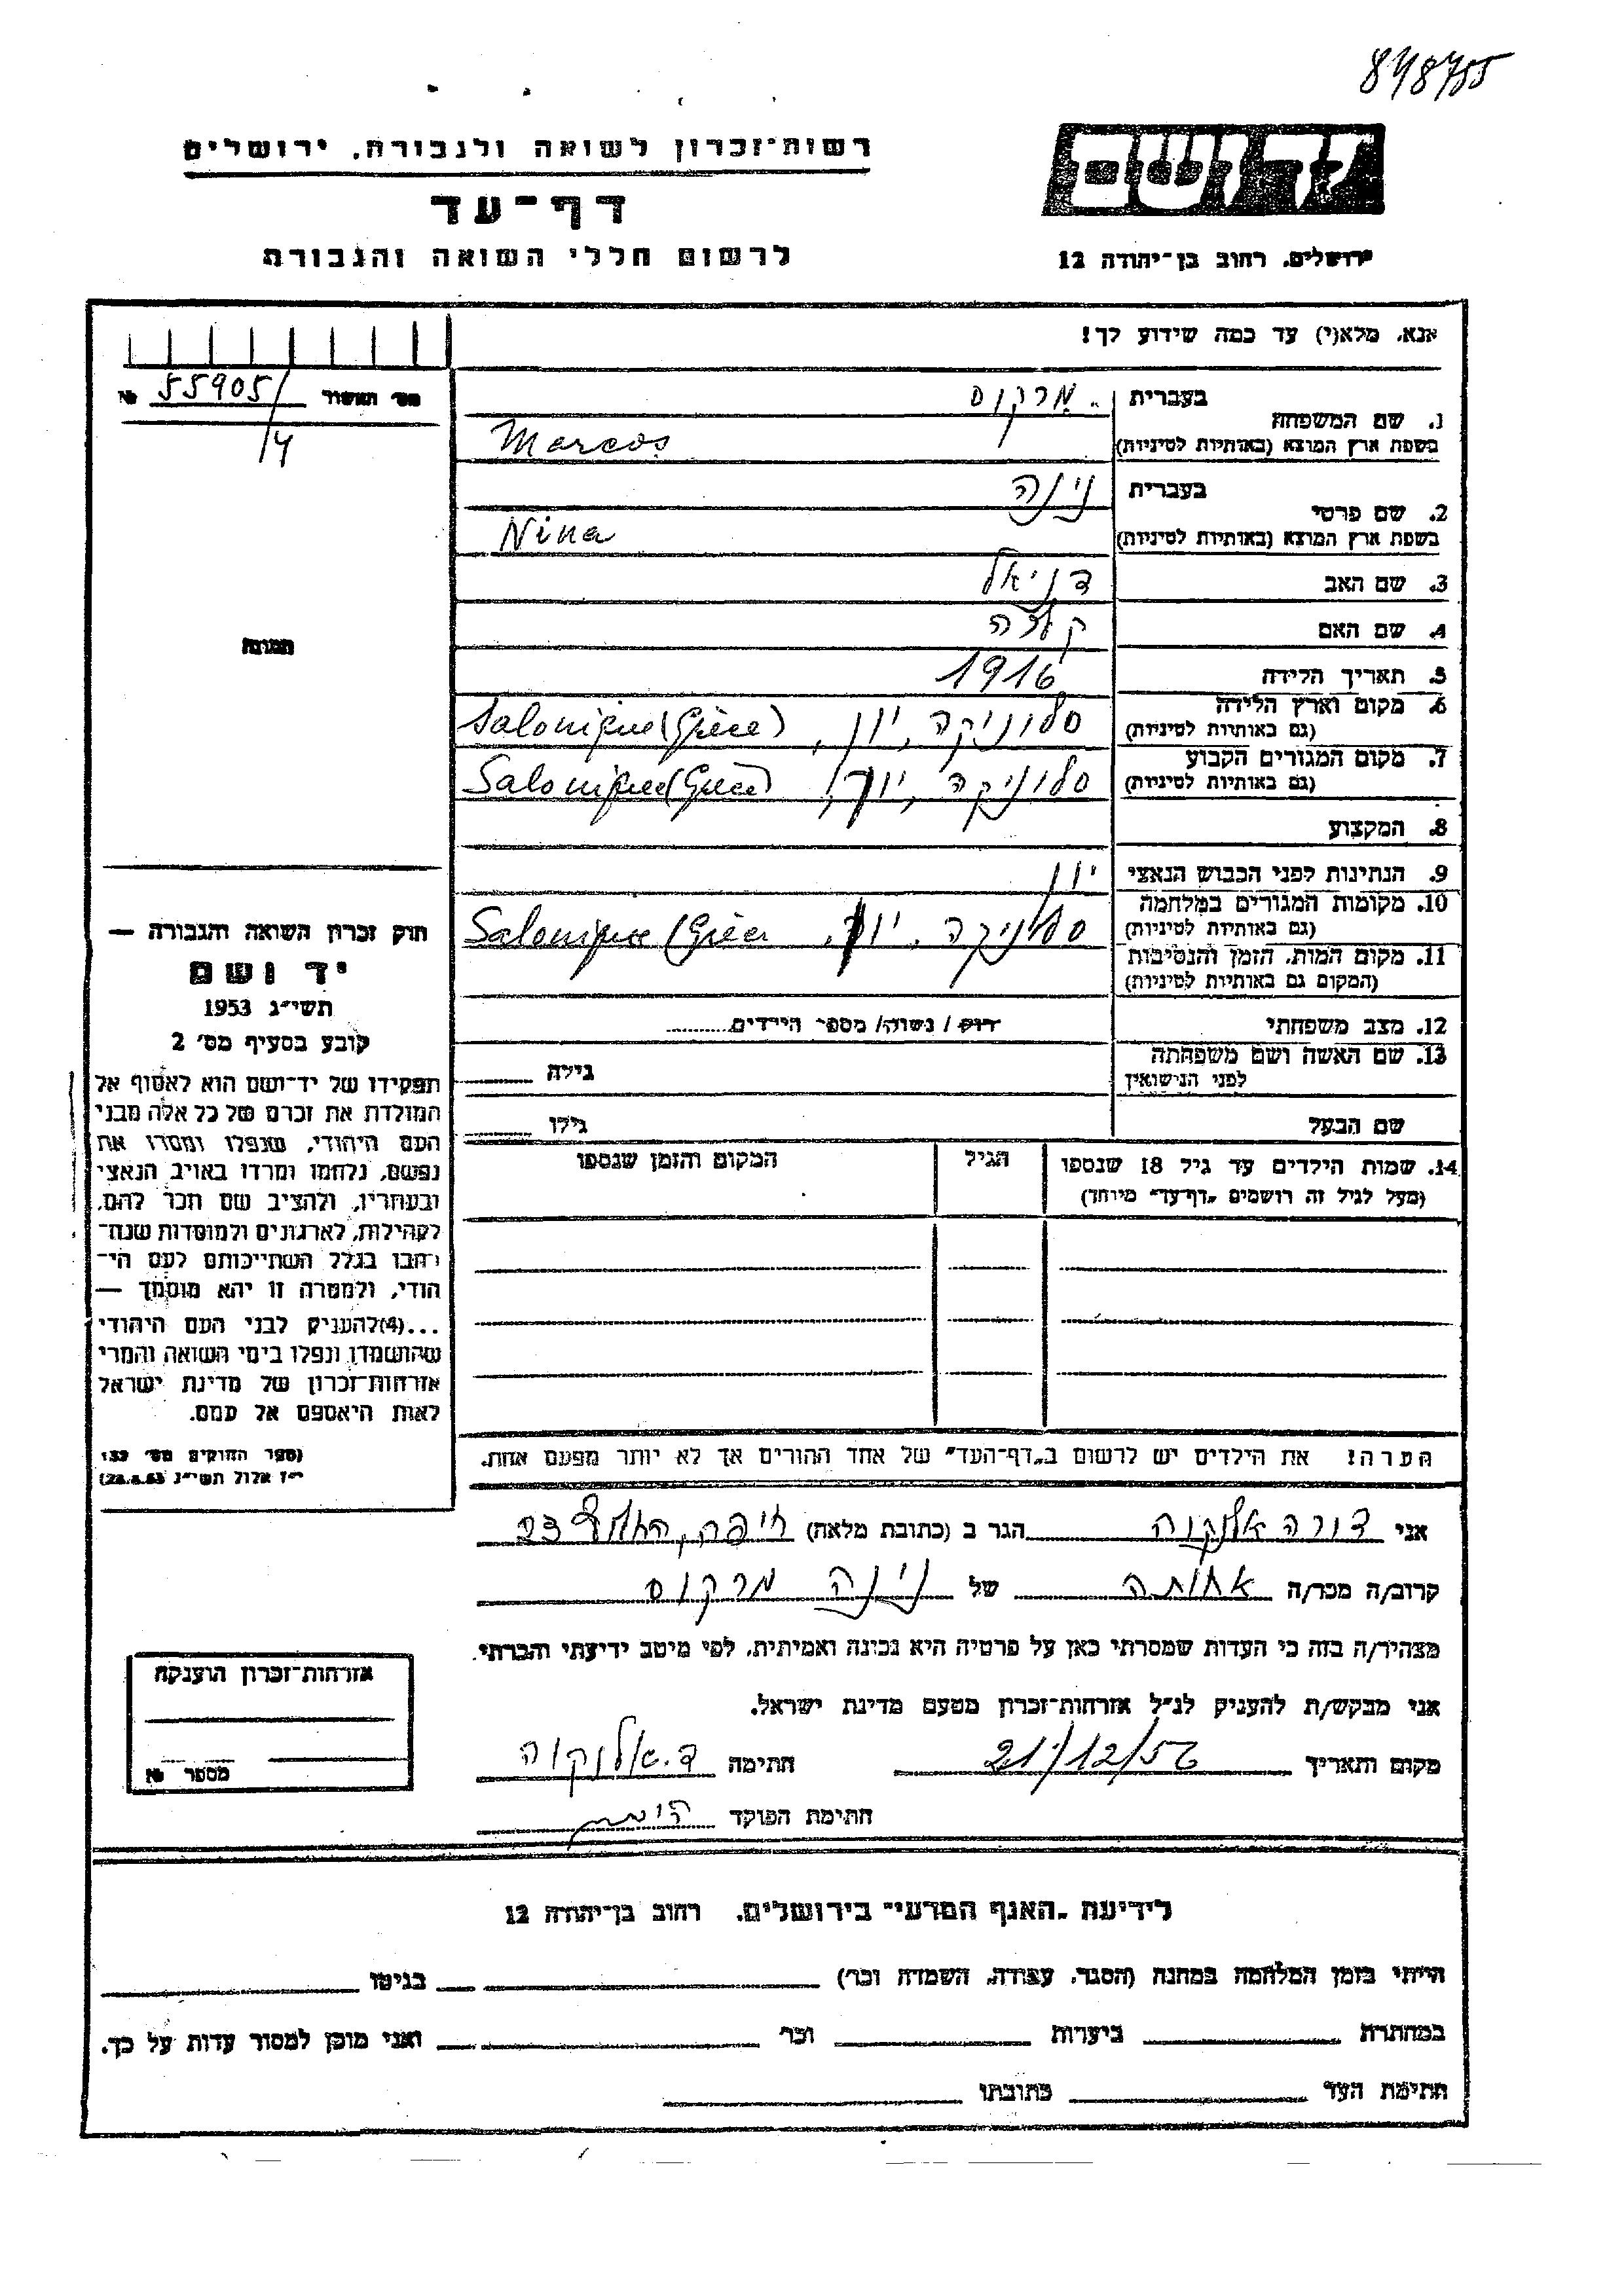 848755
רשות־זכרון לשואה ולגבורה, ירושלים
דף־עד
לרשום חללי השואה והגבורה
ירושלים, רחוב בן־יהודה 12
אנא, מלא(י) עד כמה שידוע לך!
מס׳ תאשור 55905/ №
/4
1. שם המשפחה
בעברית
מרקוס
בשפת ארץ המוצא (באותיות לטיניות)
Marcos
2. שם פרטי
בעברית
נינה
בשפת ארץ המוצא (באותיות לטיניות)
Nina
3. שם האב
דניאל
4. שם האם
קלרה
5. תאריך הלידה
1916
6. מקום וארץ הלידה
(גם באותיות לטיניות)
סלוניקה, יון, Salonique (Grèce)
7. מקום המגורים הקבוע
(גם באותיות לטיניות)
סלוניקה, יון, Salonique (Grèce)
8. המקצוע
9. הנתינות לפני הכבוש הנאצי
יון
10. מקומות המגורים במלחמה
(גם באותיות לטיניות)
סלוניקה, יון, Salonique (Grèce
11. מקום המות, הזמן והנסיבות
(המקום גם באותיות לטיניות)
12. מצב משפחתי
רוק / נשוה/ מספר הילדים
13. שם האשה ושם משפחתה
לפני הנישואין
גילה
שם הבעל
גילו
14. שמות הילדים עד גיל 18 שנספו
(מעל לגיל זה רושמים "דף־עד" מיוחד)
הגיל
המקום והזמן שנספו
הערה! את הילדים יש לרשום ב"דף־העד" של אחד ההורים אך לא יותר מפעם אחת.
תמונה
חוק זכרון השואה והגבורה —
יד ושם
תשי״ג 1953
קובע בסעיף מס׳ 2
תפקידו של יד־ושם הוא לאסוף אל
המולדת את זכרם של כל אלה מבני
העם היהודי, שנפלו ומסרו את
נפשם, נלחמו ומרדו באויב הנאצי
ובעוזריו, ולהציב שם וזכר להם,
לקהילות, לארגונים ולמוסדות שנח־
רבו בגלל השתייכותם לעם הי־
הודי, ולמטרה זו יהא מוסמך —
...(4)להעניק לבני העם היהודי
שהושמדו ונפלו בימי השואה והמרי
אזרחות־זכרון של מדינת ישראל
לאות היאספם אל עמם.
(ספר החוקים מס׳ 132
י״ז אלול תשי״ג 28.8.53)
אני דורה אלנקוה הגר ב (כתובת מלאה) חיפה, 23
קרוב/ה מכר/ה אחותה של נינה מרקוס
מצהיר/ה בזה כי העדות שמסרתי כאן על פרטיה היא נכונה ואמיתית, לפי מיטב ידיעתי והכרתי.
אני מבקש/ת להעניק לנ״ל אזרחות־זכרון מטעם מדינת ישראל.
מקום ותאריך 21/12/56 חתימה ד. אלנקוה
חתימת הפוקד
אזרחות־זכרון הוענקה
מספר №
לידיעת "האגף המדעי" בירושלים, רחוב בן־יהודה 12
הייתי בזמן המלחמה במחנה (הסגר, עבודה, השמדה וכר׳) בגיטו
במחתרת ביערות וכר׳ ואני מוכן למסור עדות על כך.
חתימת העד כתובתו